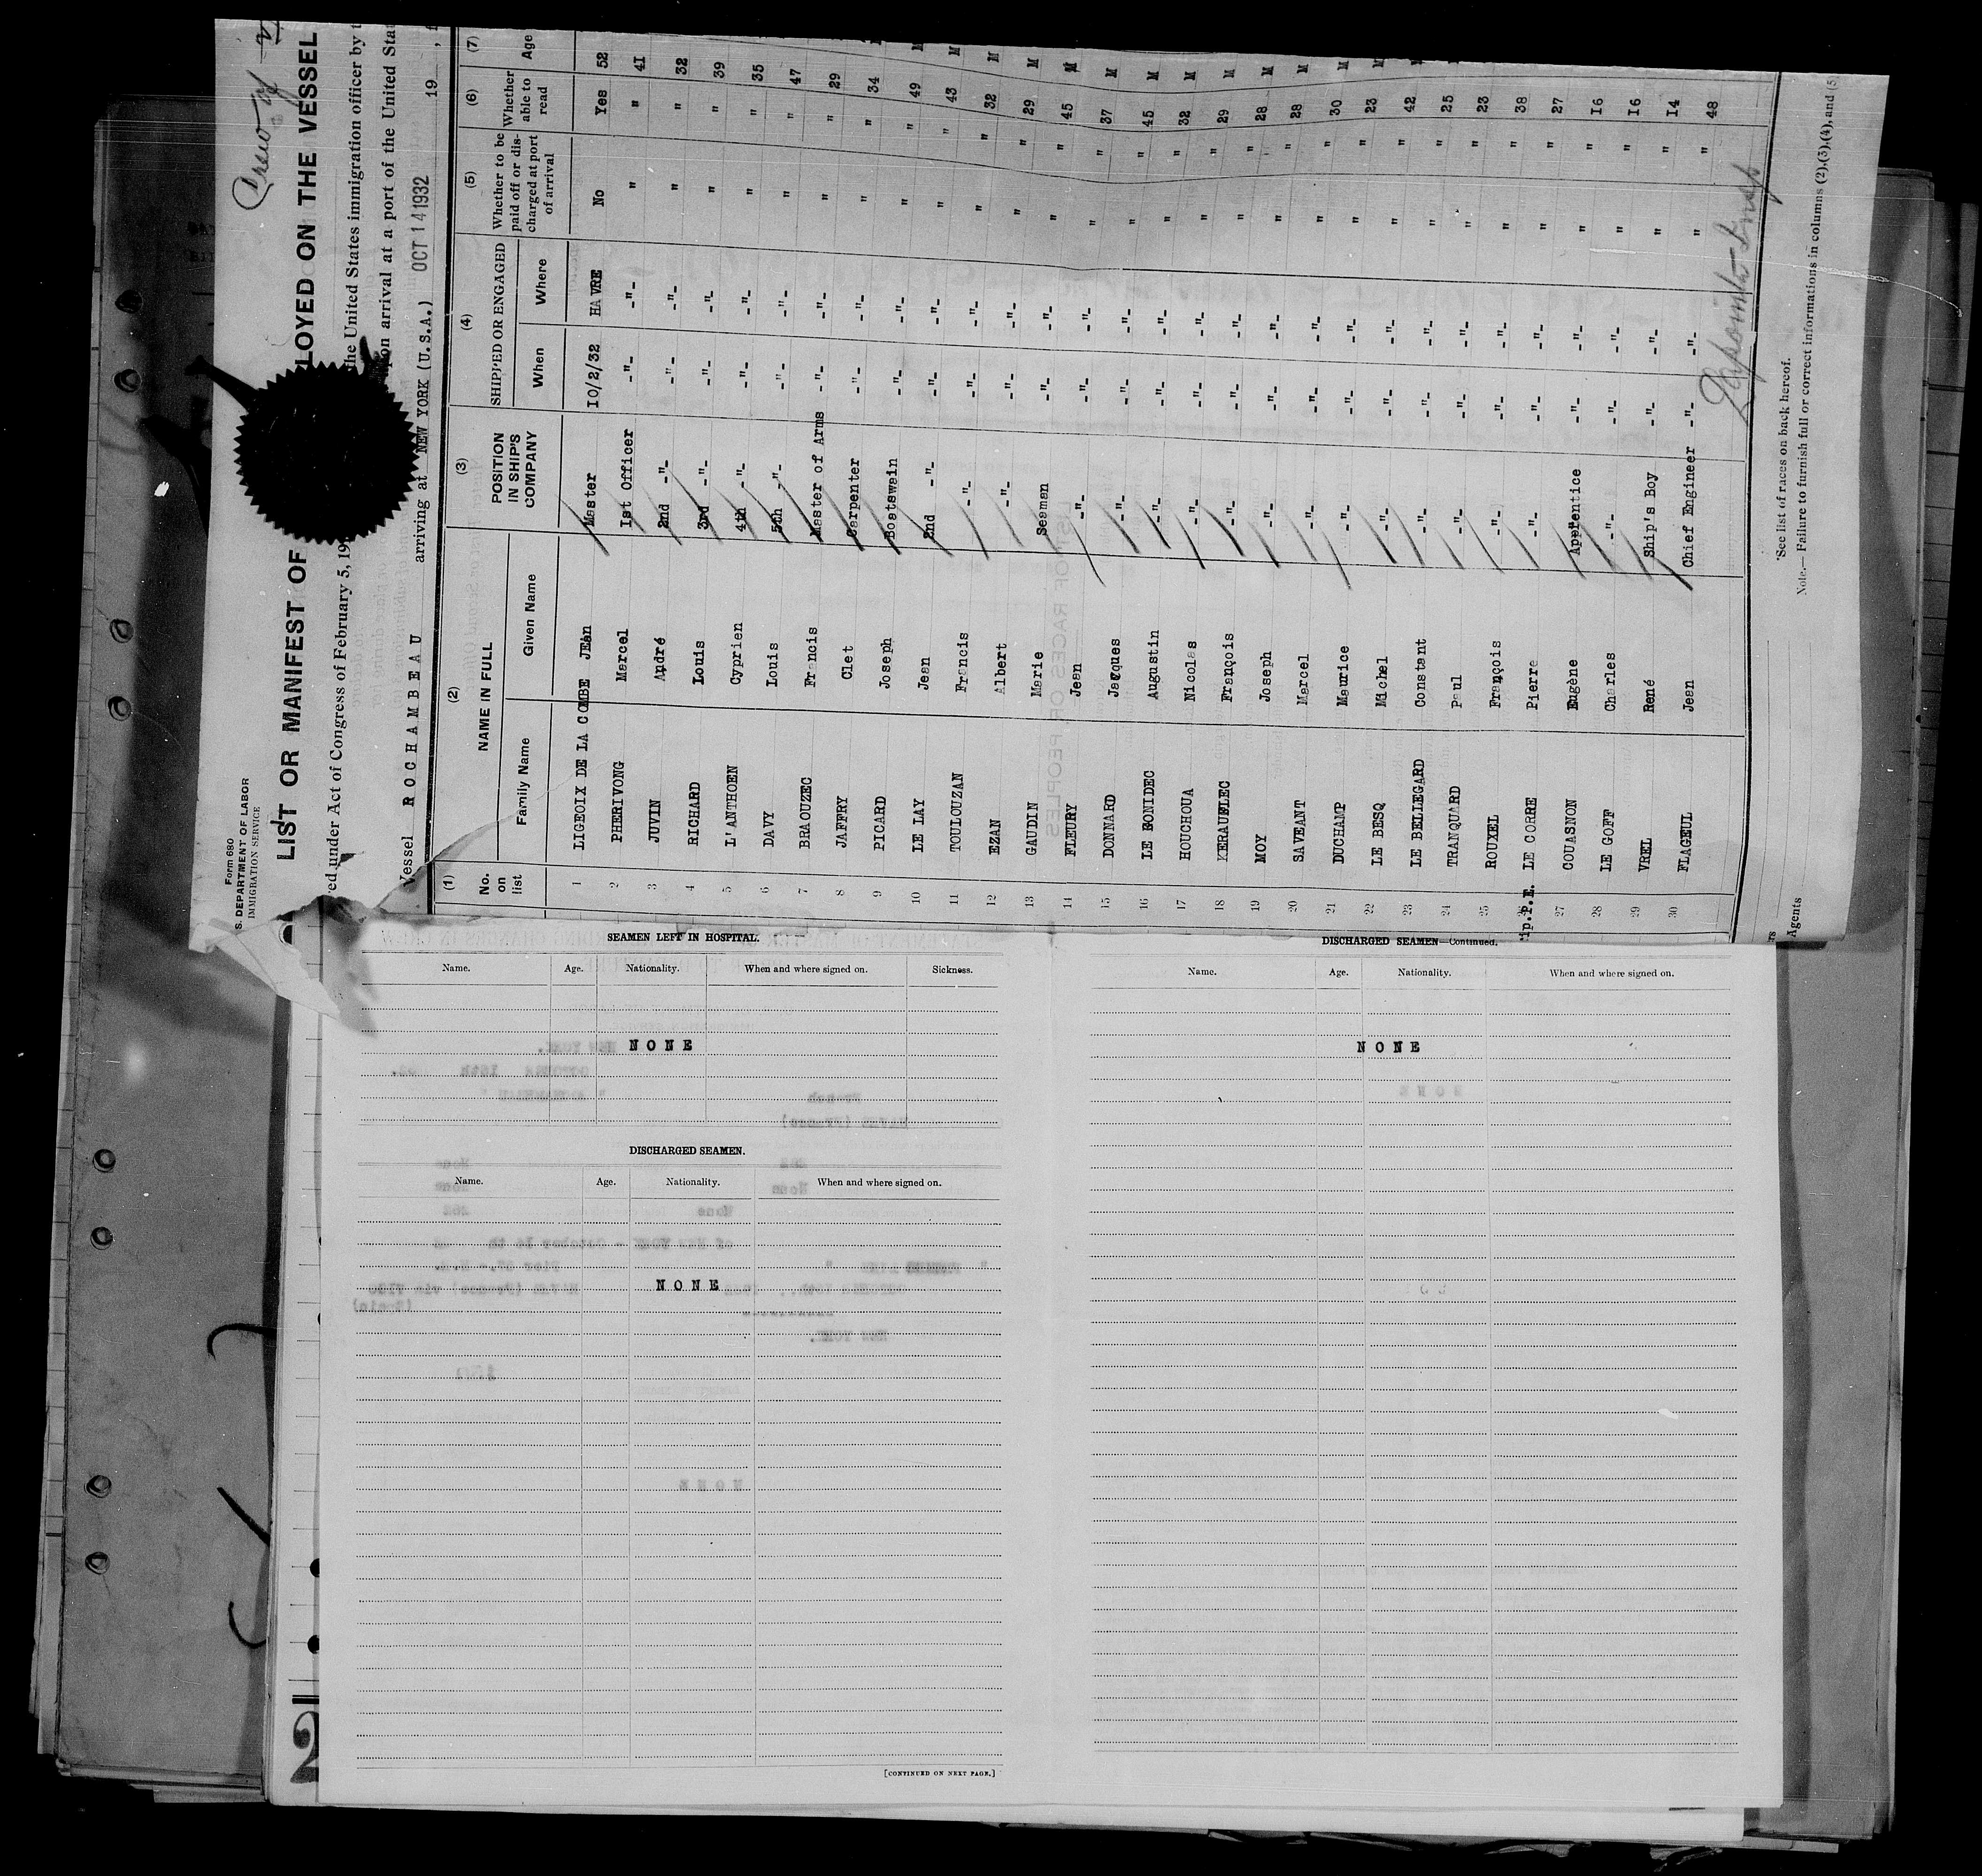 Crew of
Form 680
S. DEPARTMENT OF LABOR
IMMIGRATION SERVICE
LIST OR MANIFEST OF LOYED ON THE VESSEL
red under Act of Congress of February 5, 19 the United States immigration officer by t
on arrival at a port of the United Stat
Vessel ROCHAMBEAU arriving at NEW YORK (U.S.A.) OCT 14 1932 19
(1) (2) (3) (4) (5) (6) (7)
No. on list NAME IN FULL POSITION IN SHIP'S COMPANY SHIPPED OR ENGAGED Whether to be paid off or discharged at port of arrival Whether able to read Age
Family Name Given Name When Where
1 LIGEOIX DE LA COMBE JEAn Master 10/2/32 HAVRE No Yes 52
2 PHERIVONG Marcel Ist Officer -"- -"- " " 41
3 JUVIN André 2nd -"- -"- -"- " " 32
4 RICHARD Louis 3rd -"- -"- -"- " " 39
5 L'ANTHOEN Cyprien 4th -"- -"- -"- " " 35
6 DAVY Louis 5th -"- -"- -"- " " 47
7 BRAOUZEC Francis Master of Arms -"- -"- " " 29
8 JAFFRY Clet Carpenter -"- -"- " " 34
9 PICARD Joseph Boatswain -"- -"- " " 49 M
10 LE LAY Jean 2nd -"- -"- -"- " " 43 M
11 TOULOUZAN Francis -"- -"- -"- " " 32 M
12 EZAN Albert -"- -"- -"- " " 29 M
13 GAUDIN Marie Seaman -"- -"- " " 45 M
14 FLEURY Jean -"- -"- -"- " " 37 M
15 DONNARD Jacques -"- -"- -"- " " 45 M
16 LE BONIDEC Augustin -"- -"- -"- " " 32 M
17 HOUCHOUA Nicolas -"- -"- -"- " " 29 M
18 KERAUFLEC François -"- -"- -"- " " 28 M
19 MOY Joseph -"- -"- -"- " " 28 M
20 SAVEANT Marcel -"- -"- -"- " " 30 M
21 DUCHAMP Maurice -"- -"- -"- " " 23 M
22 LE BESQ Michel -"- -"- -"- " " 42
23 LE BELLEGARD Constant -"- -"- -"- " " 25
24 TRANQUARD Paul -"- -"- -"- " " 23
25 ROUXEL François -"- -"- -"- " " 38
LE CORRE Pierre -"- -"- -"- " " 27
27 GOUASNON Eugène Apprentice -"- -"- " " 16
28 LE GOFF Charles -"- -"- -"- " " 16
29 VREL René Ship's Boy -"- -"- " " 14
30 FLAGEUL Jean Chief Engineer -"- -"- " " 48
*See list of races on back hereof.
Agents
Note.— Failure to furnish full or correct informations in columns (2),(3),(4), and (5)
SEAMEN LEFT IN HOSPITAL.
Name. Age. Nationality. When and where signed on. Sickness.
NONE
DISCHARGED SEAMEN.
Name. Age. Nationality. When and where signed on.
NONE
[CONTINUED ON NEXT PAGE.]
DISCHARGED SEAMEN—Continued.
Name. Age. Nationality. When and where signed on.
NONE
2